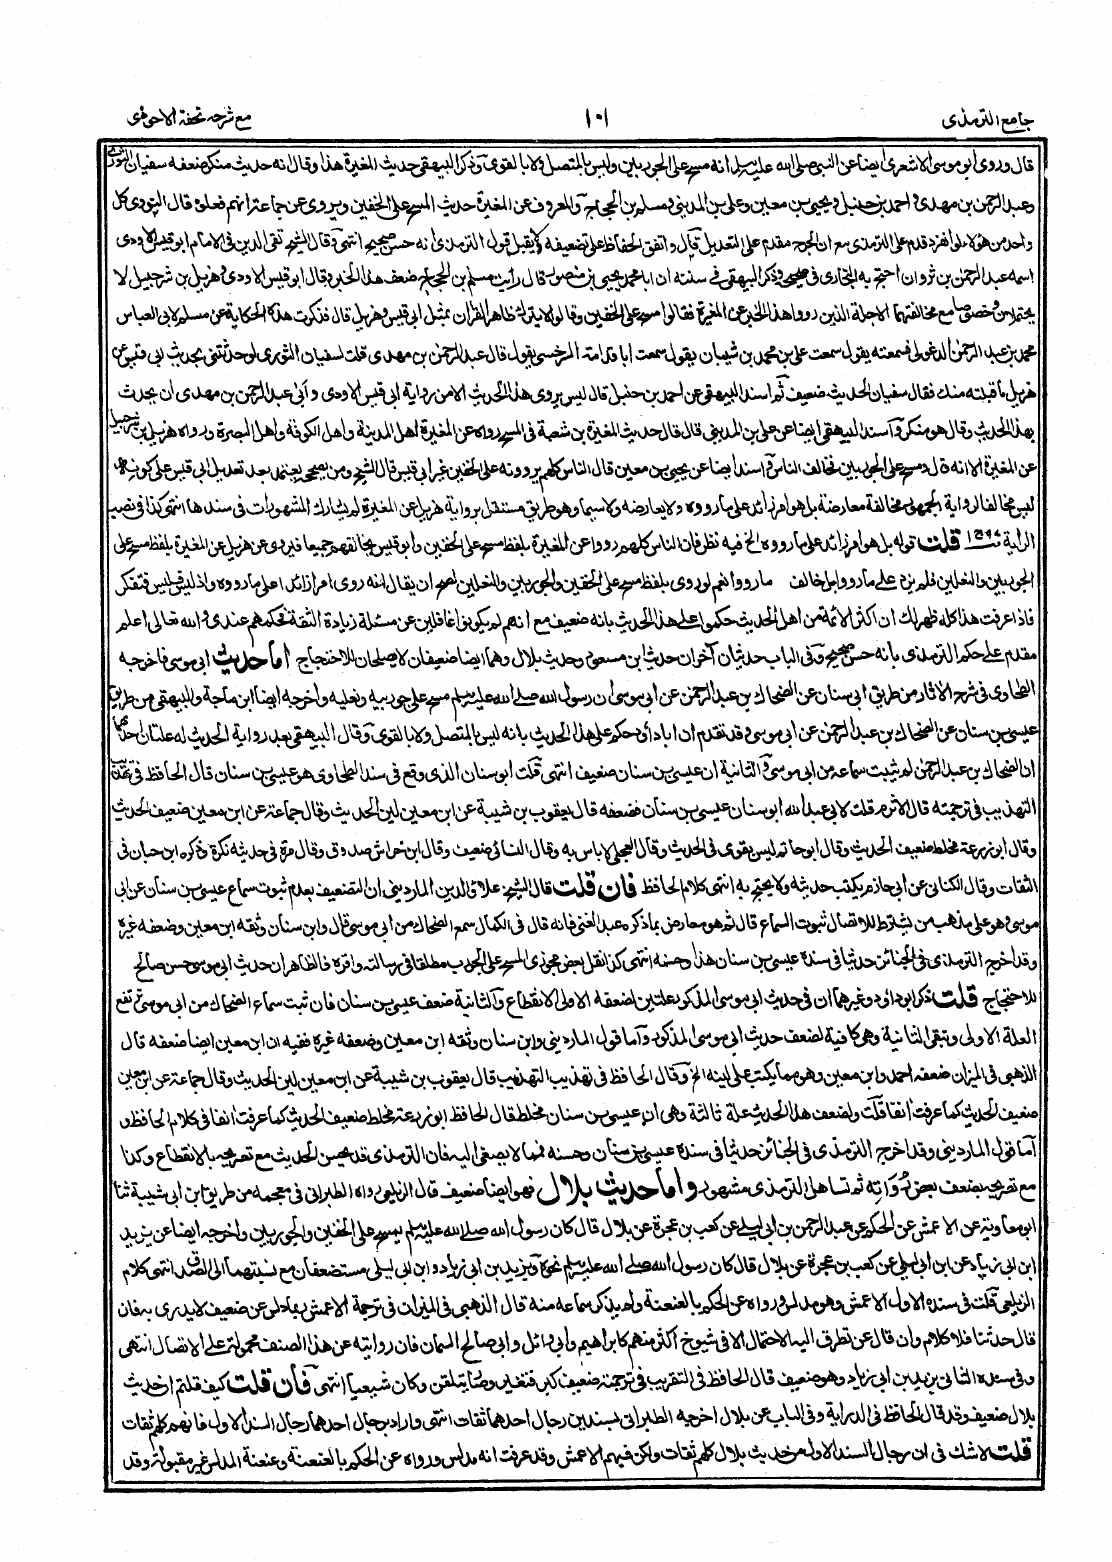 جامع الترمذى
١٠١
مع شرحه تحفة الاحوذى
قال وروى ابو موسى الاشعرى ايضا عن النبى صلى الله عليه وسلم انه مسح على الجوربين وليس بالمتصل ولا بالقوى وذكر البيهقى حديث المغيرة هذا وقال انه حديث منكر ضعفه سفيان الثورى
وعبد الرحمن بن مهدى واحمد بن حنبل ويحيى بن معين وعلى بن المدينى ومسلم بن الحجاج والمعروف عن المغيرة حديث المسح على الخفين ويروى عن جماعة انهم فعلوه قال النووى كل
واحد من هؤلاء لو انفرد قدم على الترمذى مع ان الجرح مقدم على التعديل قال واتفق الحفاظ على تضعيفه ولا يقبل قول الترمذى انه حسن صحيح انتهى وقال الشيخ تقى الدين فى الامام ابو قيس الاودى
اسمه عبد الرحمن بن ثروان احتج به البخارى فى صحيحه وذكر البيهقى فى سننه ان ابا محمد يحيى بن منصور قال رأيت مسلم بن الحجاج ضعف هذا الخبر وقال ابو قيس الاودى وهزيل بن شرحبيل لا
يحتملان وخصوصا مع مخالفتهما الاجلة الذين رووا هذا الخبر عن المغيرة فقالوا مسح على الخفين وقالوا لا يترك ظاهر القرآن بمثل ابى قيس وهزيل قال فذكرت هذه الحكاية عن مسلم لابى العباس
محمد بن عبد الرحمن الدغولى فسمعته يقول سمعت على بن محمد بن شيبان يقول سمعت ابا قدامة السرخسى يقول قال عبد الرحمن بن مهدى قلت لسفيان الثورى لو حدثتنى بحديث ابى قيس عن
هزيل ما قبلته منك فقال سفيان الحديث ضعيف ثم اسند البيهقى عن احمد بن حنبل قال ليس يروى هذا الحديث الا من رواية ابى قيس الاودى وابى عبد الرحمن بن مهدى ان يحدث
بهذا الحديث وقال هو منكر واسند البيهقى ايضا عن على بن المدينى قال قال حديث المغيرة بن شعبة فى المسح رواه عن المغيرة اهل المدينة واهل الكوفة واهل البصرة ورواه هزيل بن شرحبيل
عن المغيرة الا انه قال ومسح على الجوربين فخالف الناس واسند ايضا عن يحيى بن معين قال الناس كلهم يروونه على الخفين غير ابى قيس قال الشيخ ومن يصححه يعتمد بعد تعديل ابى قيس على كونه
ليس مخالفا لرواية الجمهور مخالفة معارضة بل هو امر زائد على ما رووه ولا يعارضه ولا سيما وهو طريق مستقل برواية هزيل عن المغيرة لم يشارك المشهورات فى سندها انتهى كذا فى نصب
الراية قلت قوله بل هو امر زائد على ما رووه الخ فيه نظر فان الناس كلهم رووا عن المغيرة بلفظ مسح على الخفين وابو قيس يخالفهم جميعا فيروى عن هزيل عن المغيرة بلفظ مسح على
الجوربين والنعلين فلم يزد على ما رووا بل خالف ما رووا نعم لو روى بلفظ مسح على الخفين والجوربين والنعلين لصح ان يقال انه روى امرا زائدا على ما رووه واذ ليس فليس فتفكر
فاذا عرفت هذا كله ظهر لك ان اكثر الائمة من اهل الحديث حكموا على هذا الحديث بانه ضعيف مع انهم لم يكونوا غافلين عن مسئلة زيادة الثقة فحكمهم عندى والله تعالى اعلم
مقدم على حكم الترمذى بانه حسن صحيح وفى الباب حديثان آخران حديث ابى موسى وحديث بلال وهما ايضا ضعيفان لا يصلحان للاحتجاج اما حديث ابى موسى فاخرجه
الطحاوى فى شرح الآثار من طريق ابى سنان عن الضحاك بن عبد الرحمن عن ابى موسى ان رسول الله صلى الله عليه وسلم مسح على جوربيه ونعليه واخرجه ايضا ابن ماجة والبيهقى من طريق
عيسى بن سنان عن الضحاك بن عبد الرحمن عن ابى موسى وقد تقدم ان ابا داود حكم على هذا الحديث بانه ليس بالمتصل ولا بالقوى وقال البيهقى بعد رواية الحديث له علتان احداهما
ان الضحاك بن عبد الرحمن لم يثبت سماعه من ابى موسى والثانية ان عيسى بن سنان ضعيف انتهى قلت ابو سنان الذى وقع فى سند الطحاوى هو عيسى بن سنان قال الحافظ فى تهذيب
التهذيب فى ترجمته قال الاثرم قلت لابى عبد الله ابو سنان عيسى بن سنان فضعفه قال يعقوب بن شيبة عن ابن معين لين الحديث وقال جماعة عن ابن معين ضعيف الحديث
وقال ابو زرعة مخلط ضعيف الحديث وقال ابو حاتم ليس بقوى فى الحديث وقال العجلى لا باس به وقال النسائى ضعيف وقال ابن خراش صدوق وقال مرة فى حديثه نكرة وذكره ابن حبان فى
الثقات وقال الكنانى عن ابى حازم يكتب حديثه ولا يحتج به انتهى كلام الحافظ فان قلت قال الشيخ علاؤ الدين الماردينى ان التضعيف بعدم ثبوت سماع عيسى بن سنان عن ابى
موسى هو على مذهب من يشترط للاتصال ثبوت السماع قال ثم هو معارض بما ذكره عبد الغنى فانه قال فى الكمال سمع الضحاك من ابى موسى قال وابن سنان وثقه ابن معين وضعفه غيره
وقد اخرج الترمذى فى الجنائز حديثا فى سنده عيسى بن سنان هذا وحسنه انتهى كذا نقل بعض مجوزى المسح على الجورب مطلقا فى رسالته واقره فالظاهر ان حديث ابى موسى حسن صالح
للاحتجاج قلت ذكر ابو داود وغيره ان فى حديث ابى موسى المذكور علتين لضعفه الاولى الانقطاع والثانية ضعف عيسى بن سنان فان ثبت سماع الضحاك من ابى موسى ترتفع
العلة الاولى وتبقى الثانية وهى كافية لضعف حديث ابى موسى المذكور واما قول الماردينى وابن سنان وثقه ابن معين وضعفه غيره ففيه ان ابن معين ايضا ضعفه قال
الذهبى فى الميزان ضعفه احمد وابن معين وهو مما يكتب على لينه الخ وقال الحافظ فى تهذيب التهذيب قال يعقوب بن شيبة عن ابن معين لين الحديث وقال جماعة عن ابن معين
ضعيف الحديث كما عرفت آنفا قلت ولضعف هذا الحديث علة ثالثة وهى ان عيسى بن سنان مخلط قال الحافظ ابو زرعة مخلط ضعيف الحديث كما عرفت آنفا فى كلام الحافظ و
اما قول الماردينى وقد اخرج الترمذى فى الجنائز حديثا فى سنده عيسى بن سنان وحسنه فمما لا يصغى اليه فان الترمذى قد يحسن الحديث مع تصريحه بالانقطاع وكذا
مع تصريحه بضعف بعض رواته ثم تساهل الترمذى مشهور واما حديث بلال فهو ايضا ضعيف قال الزيلعى رواه الطبرانى فى معجمه من طريق ابن ابى شيبة ثنا
ابو معاوية عن الاعمش عن الحكم عن عبد الرحمن بن ابى ليلى عن كعب بن عجرة عن بلال قال كان رسول الله صلى الله عليه وسلم يمسح على الخفين والجوربين واخرجه ايضا عن يزيد
ابن ابى زياد عن ابن ابى ليلى عن كعب بن عجرة عن بلال قال كان رسول الله صلى الله عليه وسلم نحوه ويزيد بن ابى زياد وابن ابى ليلى مستضعفان مع نسبتهما الى الصدق انتهى كلام
الزيلعى قلت فى سنده الاول الاعمش وهو مدلس ورواه عن الحكم بالعنعنة ولم يذكر سماعه منه قال الذهبى فى الميزان فى ترجمة الاعمش ربما دلس عن ضعيف لا يدرى به فان
قال حدثنا فلا كلام وان قال عن تطرق اليه الاحتمال الا فى شيوخ اكثر منهم كابراهيم وابى وائل وابى صالح السمان فان روايته عن هذا الصنف محمولة على الاتصال انتهى
وفى سنده الثانى يزيد بن ابى زياد وهو ضعيف قال الحافظ فى التقريب فى ترجمته ضعيف كبر فتغير وصار يتلقن وكان شيعيا انتهى فان قلت كيف قلتم ان حديث
بلال ضعيف وقد قال الحافظ فى الدراية وفى الباب عن بلال اخرجه الطبرانى بسندين رجال احدهما ثقات انتهى واراد برجال احدهما رجال السند الاول فانهم كلهم ثقات
قلت لا شك فى ان رجال السند الاول من حديث بلال كلهم ثقات ولكن فيهم الاعمش وقد عرفت انه مدلس ورواه عن الحكم بالعنعنة وعنعنة المدلس غير مقبولة وقد